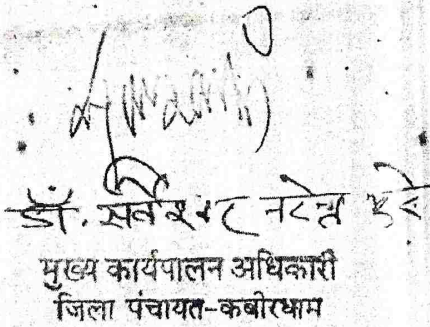 डॉ. सर्वेश्वर नरेन्द्र भुरे
मुख्य कार्यपालन अधिकारी
जिला पंचायत-कबीरधाम